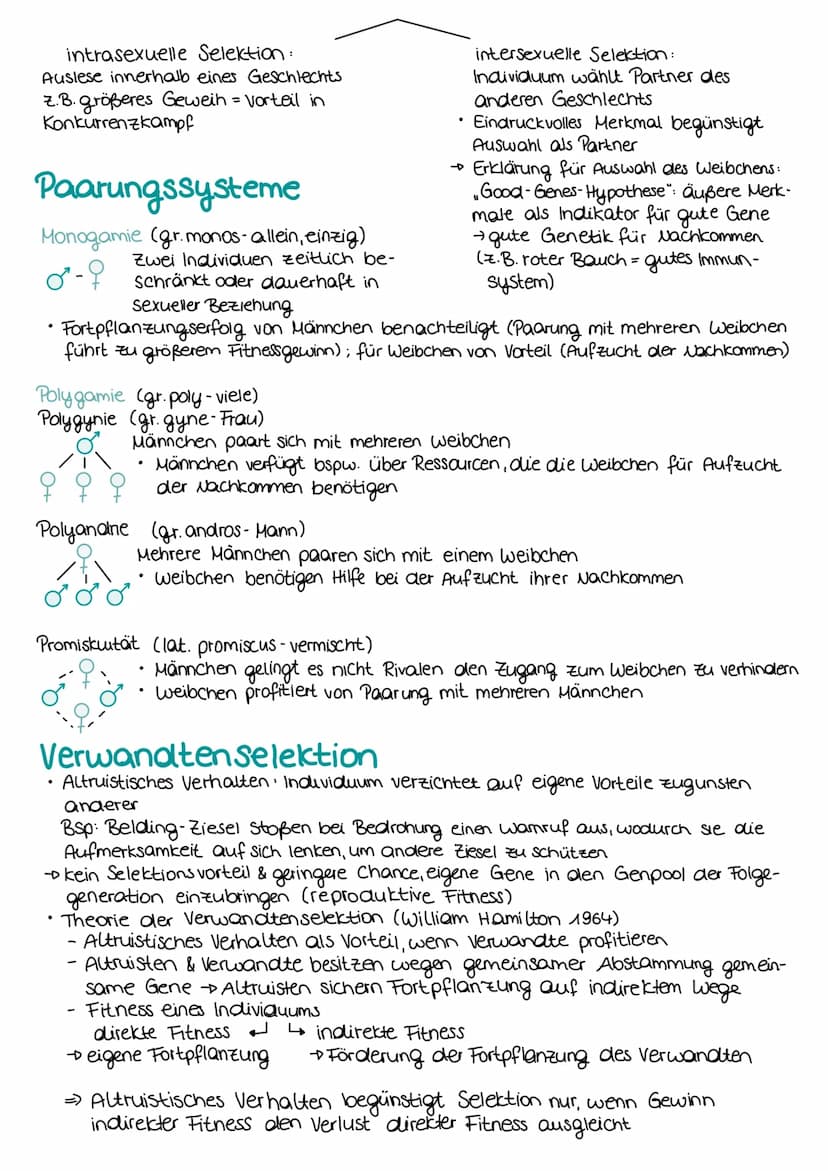 intrasexuelle Selektion:
Auslese innerhalb eines Geschlechts
z.B. größeres Geweih = Vorteil in
Konkurrenzkampf
intersexuelle Selektion:
Individuum wählt Partner des
anderen Geschlechts
• Eindruckvolles Merkmal begünstigt
Auswahl als Partner
→ Erklärung für Auswahl des Weibchens:
„Good-Genes-Hypothese“: äußere Merk-
male als Indikator für gute Gene
→ gute Genetik für Nachkommen
(z.B. roter Bauch = gutes Immun-
system)
Paarungssysteme
Monogamie (gr. monos - allein, einzig)
♂ - ♀ Zwei Individuen zeitlich be-
schränkt oder dauerhaft in
sexueller Beziehung
• Fortpflanzungserfolg von Männchen benachteiligt (Paarung mit mehreren Weibchen
führt zu größerem Fitnessgewinn); für Weibchen von Vorteil (Aufzucht der Nachkommen)
Polygamie (gr. poly - viele)
Polygynie (gr. gyne - Frau)
Männchen paart sich mit mehreren Weibchen
• Männchen verfügt bspw. über Ressourcen, die die Weibchen für Aufzucht
der Nachkommen benötigen
Polyandrie (gr. andros - Mann)
Mehrere Männchen paaren sich mit einem Weibchen
• Weibchen benötigen Hilfe bei der Aufzucht ihrer Nachkommen
Promiskuität (lat. promiscus - vermischt)
• Männchen gelingt es nicht Rivalen den Zugang zum Weibchen zu verhindern
• Weibchen profitiert von Paarung mit mehreren Männchen
Verwandtenselektion
• Altruistisches Verhalten: Individuum verzichtet auf eigene Vorteile zugunsten
anderer
Bsp: Belding-Ziesel stoßen bei Bedrohung einen Warnruf aus, wodurch sie die
Aufmerksamkeit auf sich lenken, um andere Ziesel zu schützen
→ kein Selektionsvorteil & geringere Chance, eigene Gene in den Genpool der Folge-
generation einzubringen (reproduktive Fitness)
• Theorie der Verwandtenselektion (William Hamilton 1964)
- Altruistisches Verhalten als Vorteil, wenn Verwandte profitieren
- Altruisten & Verwandte besitzen wegen gemeinsamer Abstammung gemein-
same Gene → Altruisten sichern Fortpflanzung auf indirektem Wege
- Fitness eines Individuums
direkte Fitness ↲ ↳ indirekte Fitness
→ eigene Fortpflanzung → Förderung der Fortpflanzung des Verwandten
⇒ Altruistisches Verhalten begünstigt Selektion nur, wenn Gewinn
indirekter Fitness den Verlust direkter Fitness ausgleicht